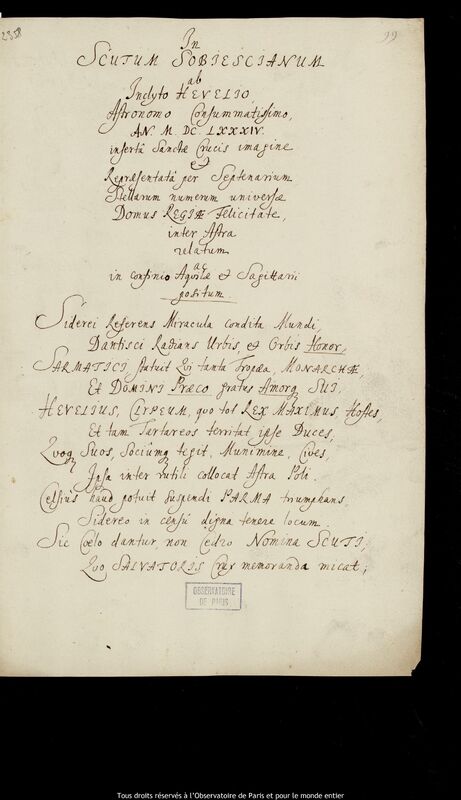 2358
99
In
SCUTUM SOBIESCIANUM
ab
Inclyto HEVELIO,
Astronomo Consummatissimo,
AN. M. DC. LXXXIV.
insertâ Sanctæ Crucis imagine
&
Repræsentatâ per Septenarium
Stellarum numerum universæ
Domus REGIÆ Felicitate,
inter Astra
relatum
ac
in confinio Aquilæ et Sagittarii
positum.
Siderei Referens Miracula condita Mundi,
Dantisci Radians Urbis, et Orbis Honor,
SARMATICI, statuit Qui tanta Tropæa, MONARCHÆ,
Et DOMINI Præco gratus Amorq SUI,
HEVELIUS, CLYPEUM, quo tot REX MAXIMUS, Hostes,
Et tam Tartareos territat ipse Duces,
Quoq Suos, Sociumq tegit, Munimine, Cives,
Ipsa inter rutili collocat Astra Poli.
Celsius haud potuit suspendi PARMA triumphans,
Sidereo in censu digna tenere locum.
Sic Cœlo dantur, non Cedro Nomina SCUTI,
Quo SALVATORIS Crux memoranda micat;
OBSERVATOIRE
DE PARIS
Tous droits réservés à l'Observatoire de Paris et pour le monde entier